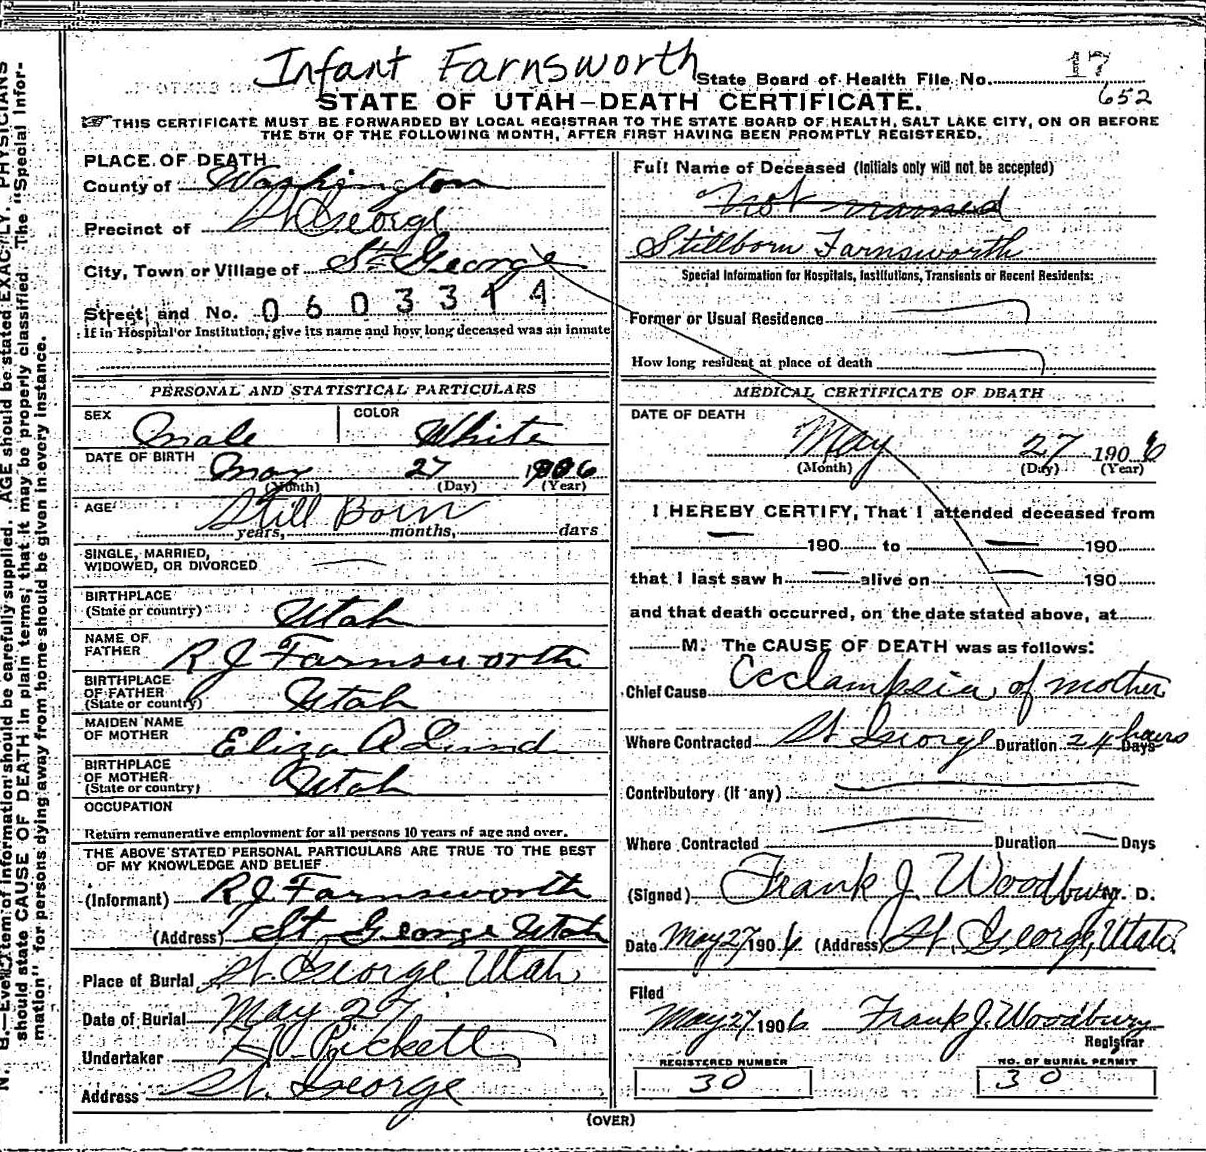 Infant Farnsworth
State Board of Health File No. 17
652
STATE OF UTAH—DEATH CERTIFICATE.
THIS CERTIFICATE MUST BE FORWARDED BY LOCAL REGISTRAR TO THE STATE BOARD OF HEALTH, SALT LAKE CITY, ON OR BEFORE
THE 5TH OF THE FOLLOWING MONTH, AFTER FIRST HAVING BEEN PROMPTLY REGISTERED.
PLACE OF DEATH
County of Washington
Precinct of St George
City, Town or Village of St. George
Street and No. 0603314
If in Hospital or Institution, give its name and how long deceased was an inmate
PERSONAL AND STATISTICAL PARTICULARS
SEX Male COLOR White
DATE OF BIRTH May 27 1906
(Month) (Day) (Year)
AGE Still Born
years, months, days
SINGLE, MARRIED,
WIDOWED, OR DIVORCED
BIRTHPLACE
(State or country) Utah
NAME OF
FATHER R J Farnsworth
BIRTHPLACE
OF FATHER
(State or country) Utah
MAIDEN NAME
OF MOTHER Eliza A Lund
BIRTHPLACE
OF MOTHER
(State or country) Utah
OCCUPATION
Return remunerative employment for all persons 10 years of age and over.
THE ABOVE STATED PERSONAL PARTICULARS ARE TRUE TO THE BEST
OF MY KNOWLEDGE AND BELIEF
(Informant) R J Farnsworth
(Address) St George Utah
Place of Burial St. George Utah
Date of Burial May 27
Undertaker Pickett
Address St. George
Full Name of Deceased (Initials only will not be accepted)
Not named
Stillborn Farnsworth
Special Information for Hospitals, Institutions, Transients or Recent Residents:
Former or Usual Residence
How long resident at place of death
MEDICAL CERTIFICATE OF DEATH
DATE OF DEATH
May 27 1906
(Month) (Day) (Year)
I HEREBY CERTIFY, That I attended deceased from
190 to 190
that I last saw h alive on 190
and that death occurred, on the date stated above, at
M. The CAUSE OF DEATH was as follows:
Chief Cause Ecclampsia of mother
Where Contracted St George Duration 24 hours Days
Contributory (if any)
Where Contracted Duration Days
(Signed) Frank J. Woodbury M. D.
Date May 27 1906. (Address) St. George, Utah.
Filed
May 27 1906 Frank J. Woodbury
Registrar
REGISTERED NUMBER
30
NO. OF BURIAL PERMIT
30
(OVER)
N. B.—Every item of information should be carefully supplied. AGE should be stated EXACTLY. PHYSICIANS
should state CAUSE OF DEATH in plain terms, that it may be properly classified. The "Special Infor-
mation" for persons dying away from home should be given in every instance.